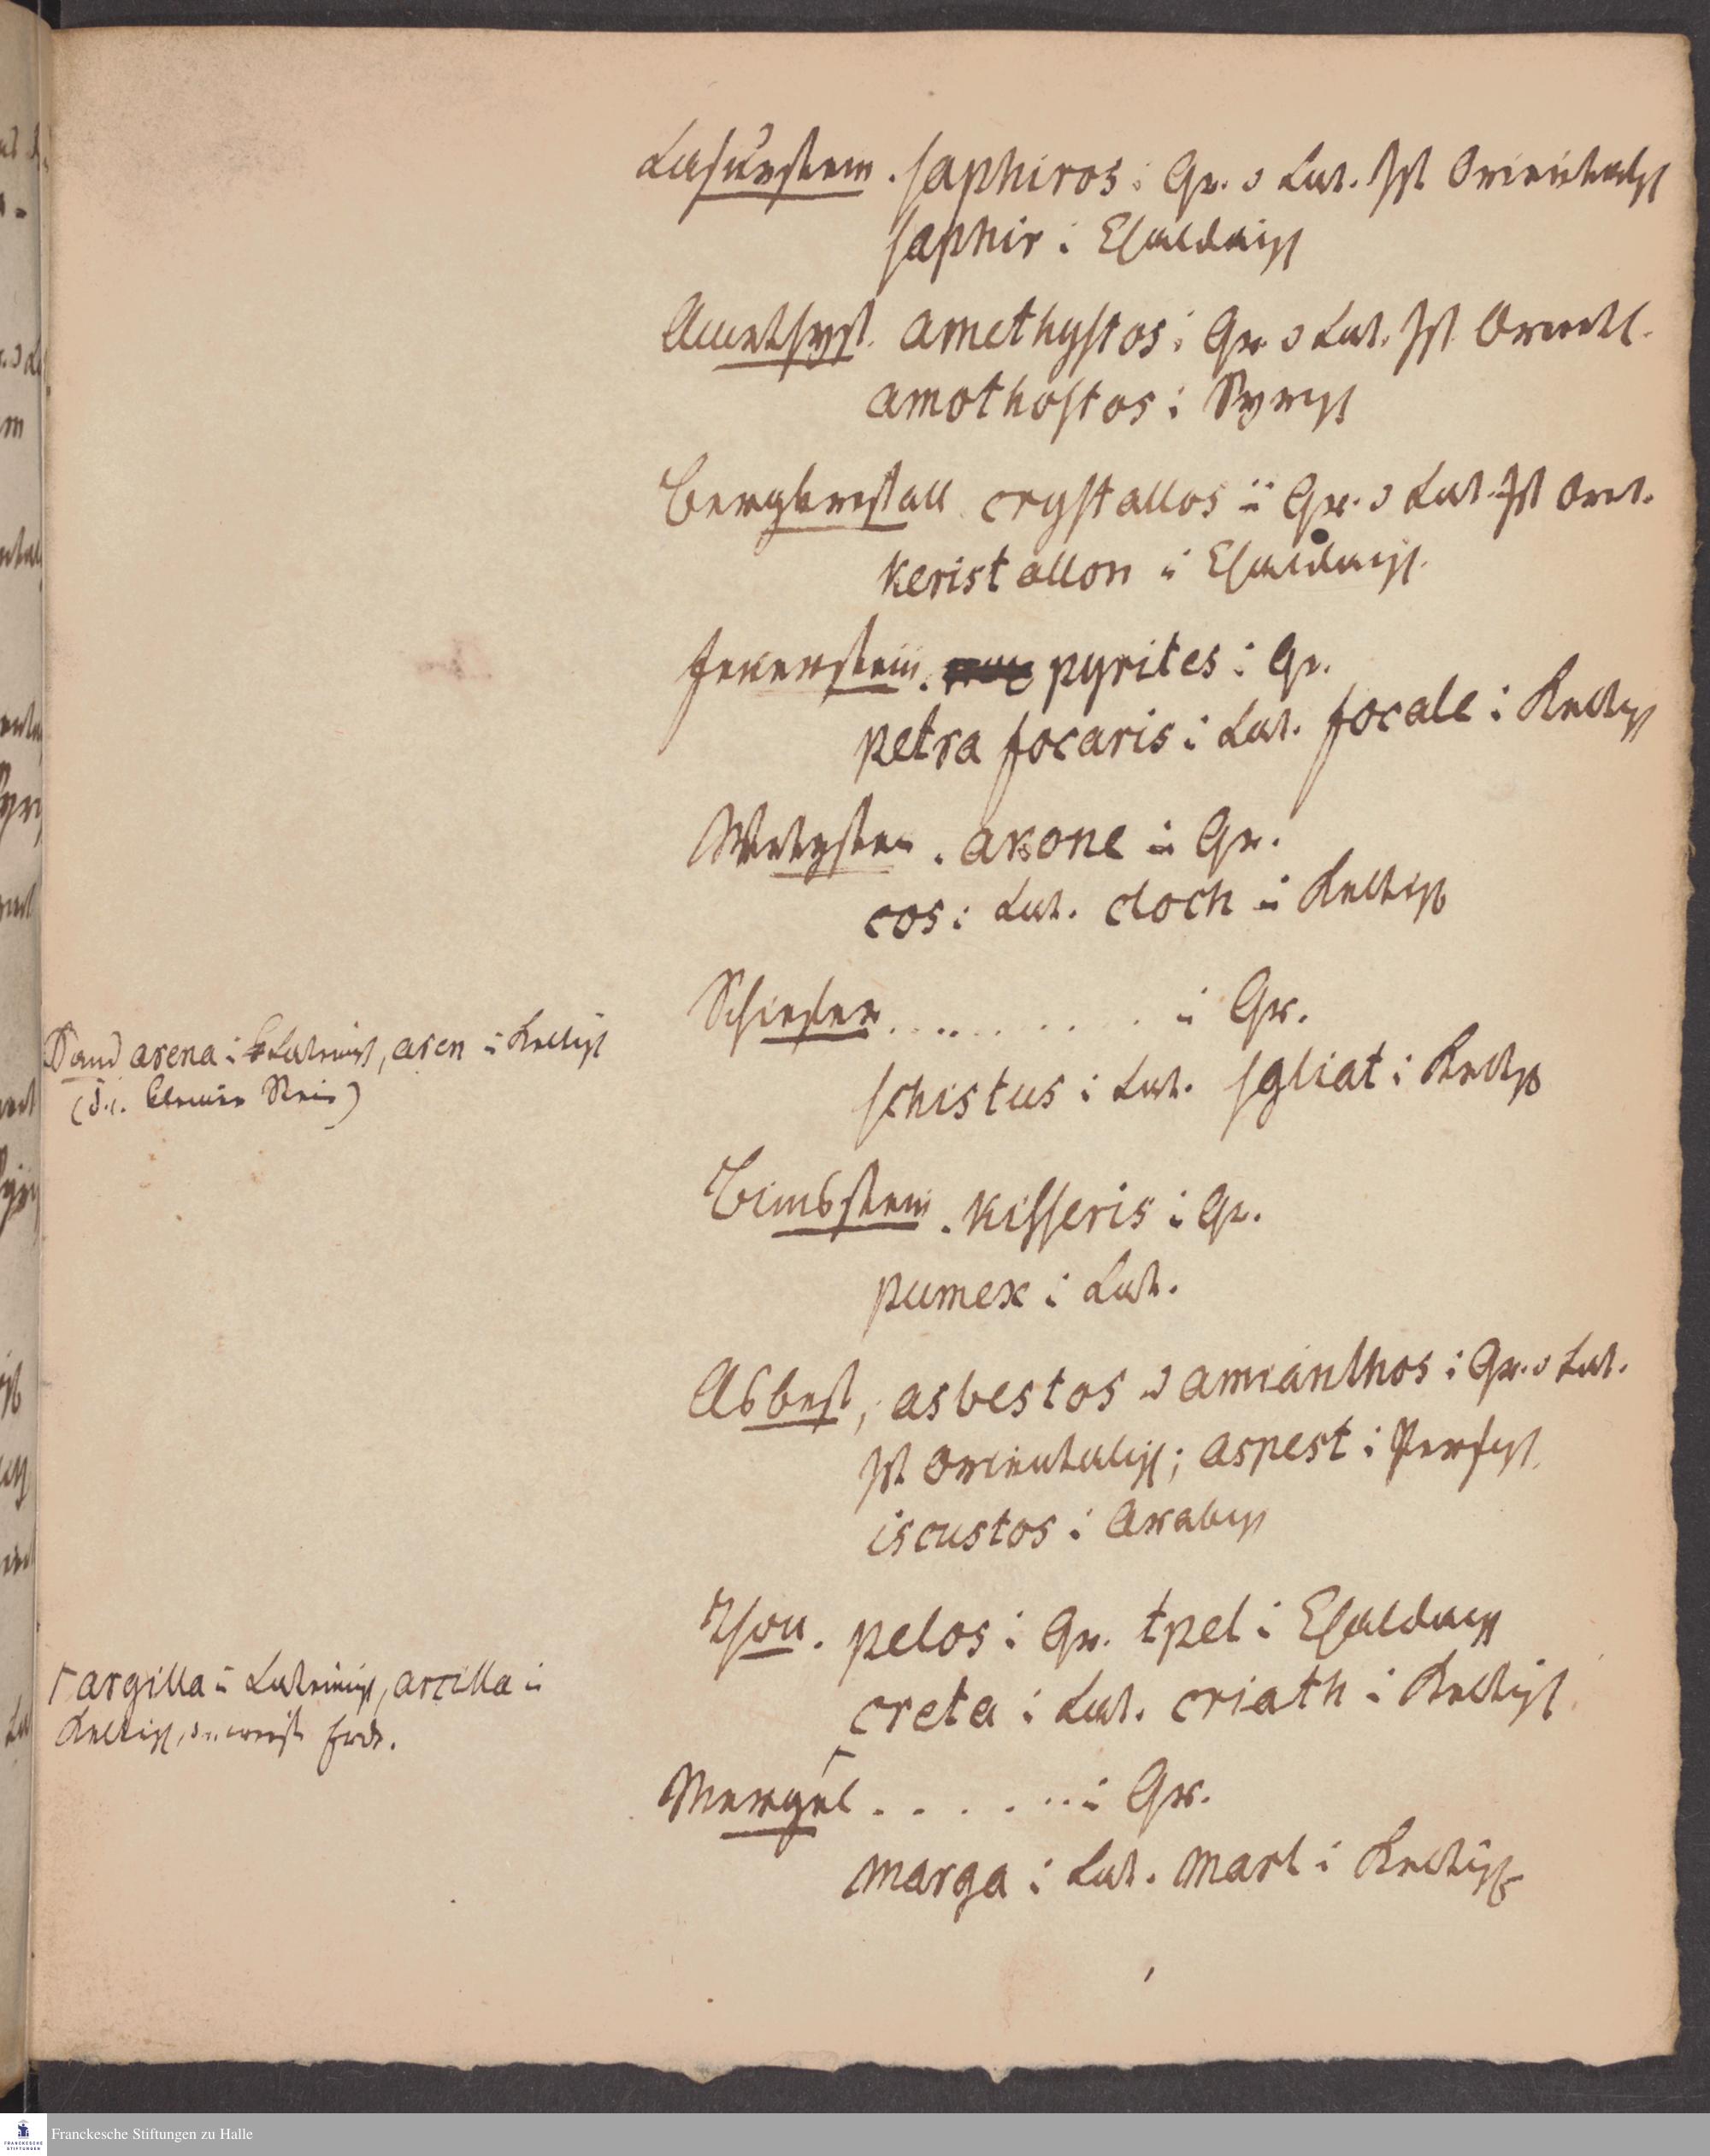 Lasurstein. saphiros i Gr. u Lat. Ist Orientalisch
saphir i Chaldäisch
Amethyst. amethystos i Gr. u Lat. Ist Orientl.
amothostos i Syrisch
Bergkristall. crystallos i Gr. u Lat. Ist Orient.
keristallon i Chaldäisch.
Feuerstein. pyrites i Gr.
petra focaris i Lat. focale i Keltisch
Wetzstein. akone i Gr.
cos i Lat. cloch i Keltisch
Schiefer . . . . . . . . . i Gr.
schistus i Lat. sgliat i Keltisch
Sand arena i Lateinisch, aren i Keltisch
(d.i. kleiner Stein)
Bimsstein. kisseris i Gr.
pumex i Lat.
Asbest, asbestos u amianthos i Gr. u Lat.
Ist Orientalisch; aspest i Persisch.
iscustos i Arabisch
Thon. pelos i Gr. tpel i Chaldäisch
creta i Lat. criath i Keltisch
┌ argilla i Lateinisch, arcilla i
Keltisch, d.i. weisse Erde.
Mergel . . . . . . i Gr.
marga i Lat. marl i Keltisch
Franckesche Stiftungen zu Halle